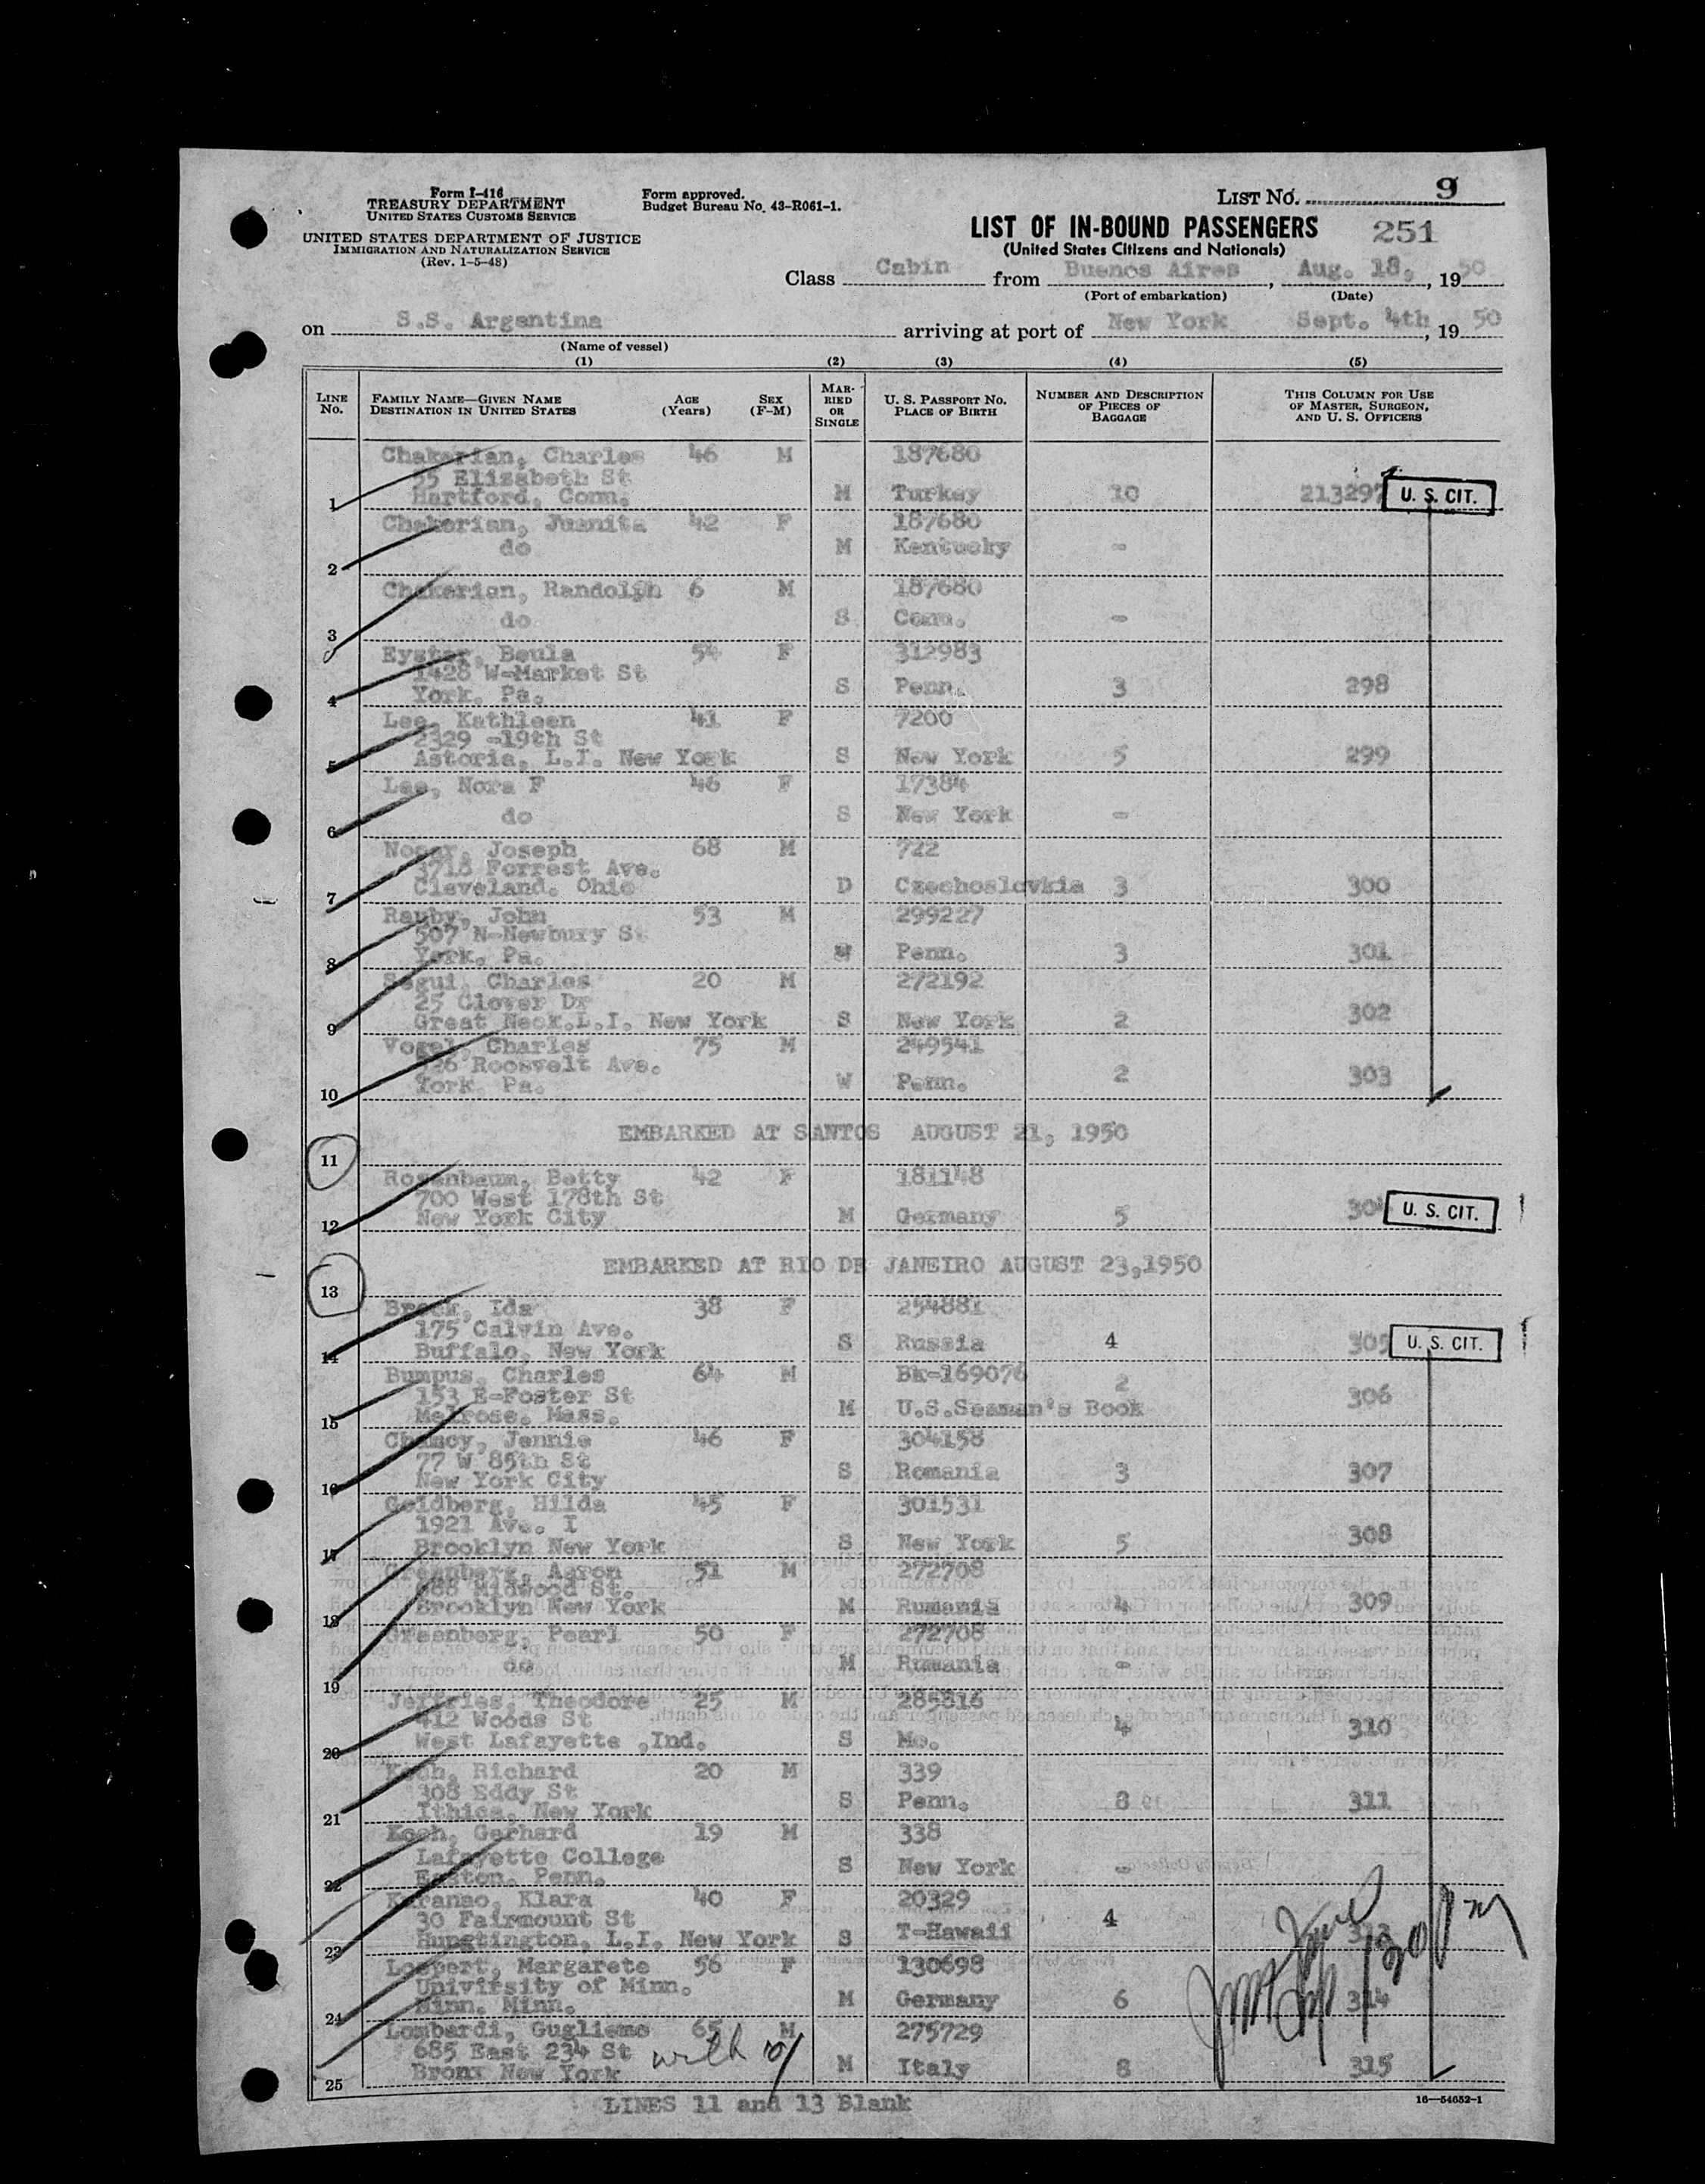 Form I-416
TREASURY DEPARTMENT
UNITED STATES CUSTOMS SERVICE
UNITED STATES DEPARTMENT OF JUSTICE
IMMIGRATION AND NATURALIZATION SERVICE
(Rev. 1-5-48)
Form approved.
Budget Bureau No. 43-R061-1.
LIST NO. 9
LIST OF IN-BOUND PASSENGERS 251
(United States Citizens and Nationals)
Class Cabin from Buenos Aires, Aug. 18, 1950
(Port of embarkation) (Date)
on S.S. Argentina arriving at port of New York Sept. 4th, 1950
(Name of vessel)
(1) (2) (3) (4) (5)
LINE No. FAMILY NAME—GIVEN NAME DESTINATION IN UNITED STATES AGE (Years) SEX (F-M) MARRIED OR SINGLE U. S. PASSPORT No. PLACE OF BIRTH NUMBER AND DESCRIPTION OF PIECES OF BAGGAGE THIS COLUMN FOR USE OF MASTER, SURGEON, AND U. S. OFFICERS
Chakerian, Charles 46 M 187680
55 Elizabeth St
1 Hartford, Conn. M Turkey 10 213297 U. S. CIT.
Chakerian, Juanita 42 F 187680
do M Kentucky -
2
Chakerian, Randolph 6 M 187680
do S Conn. -
3
Eyster, Beula 54 F 312983
1428 W-Market St
4 York. Pa. S Penn. 3 298
Lee, Kathleen 41 F 7200
2329 -19th St
5 Astoria, L.I. New York S New York 5 299
Lee, Nora F 46 F 17384
do S New York -
6
Joseph 68 M 722
3718 Forrest Ave.
7 Cleveland. Ohio D Czechoslovkia 3 300
Rauby, John 53 M 299227
507 N-Newbury St
8 York. Pa. Penn. 3 301
Segui, Charles 20 M 272192
25 Clover Dr
9 Great Neck.L.I. New York S New York 2 302
Vogel, Charles 75 M 249541
Roosvelt Ave.
10 York. Pa. W Penn. 2 303
EMBARKED AT SANTOS AUGUST 21, 1950
11
Rosenbaum, Betty 42 F 181148
700 West 178th St
12 New York City M Germany 5 304 U. S. CIT.
EMBARKED AT RIO DE JANEIRO AUGUST 23,1950
13
Ida 38 F 254881
175 Calvin Ave.
14 Buffalo, New York S Russia 4 305 U. S. CIT.
Bumpus, Charles 64 M Bk-169076 2
153 E-Foster St 306
15 Melrose. Mass. M U.S.Seaman's Book
Chamcy, Jennie 46 F 304158
77 W 85th St
16 New York City S Romania 3 307
Goldberg, Hilda 45 F 301531
1921 Ave. I
17 Brooklyn New York S New York 5 308
Greenberg, Aaron 51 M 272708
688 Midwood St.
18 Brooklyn New York M Rumania 4 309
Greenberg, Pearl 50 F 272708
do M Rumania -
19
Jeffries, Theodore 25 M 285816
412 Woods St
20 West Lafayette ,Ind. S Mo. 4 310
Koch, Richard 20 M 339
308 Eddy St
21 Ithica. New York S Penn. 8 311
Koch, Gerhard 19 M 338
Lafayette College
22 Easton. Penn. S New York -
Klara 40 F 20329
30 Fairmount St
23 Hungtington, L.I. New York S T-Hawaii 4 313
Loepert, Margarete 56 F 130698
Univirsity of Minn.
24 Minn. Minn. M Germany 6 314
Lombardi, Gugliemo 65 M 275729
685 East 234 St
25 Bronx New York M Italy 8 315
LINES 11 and 13 Blank
16—54652-1